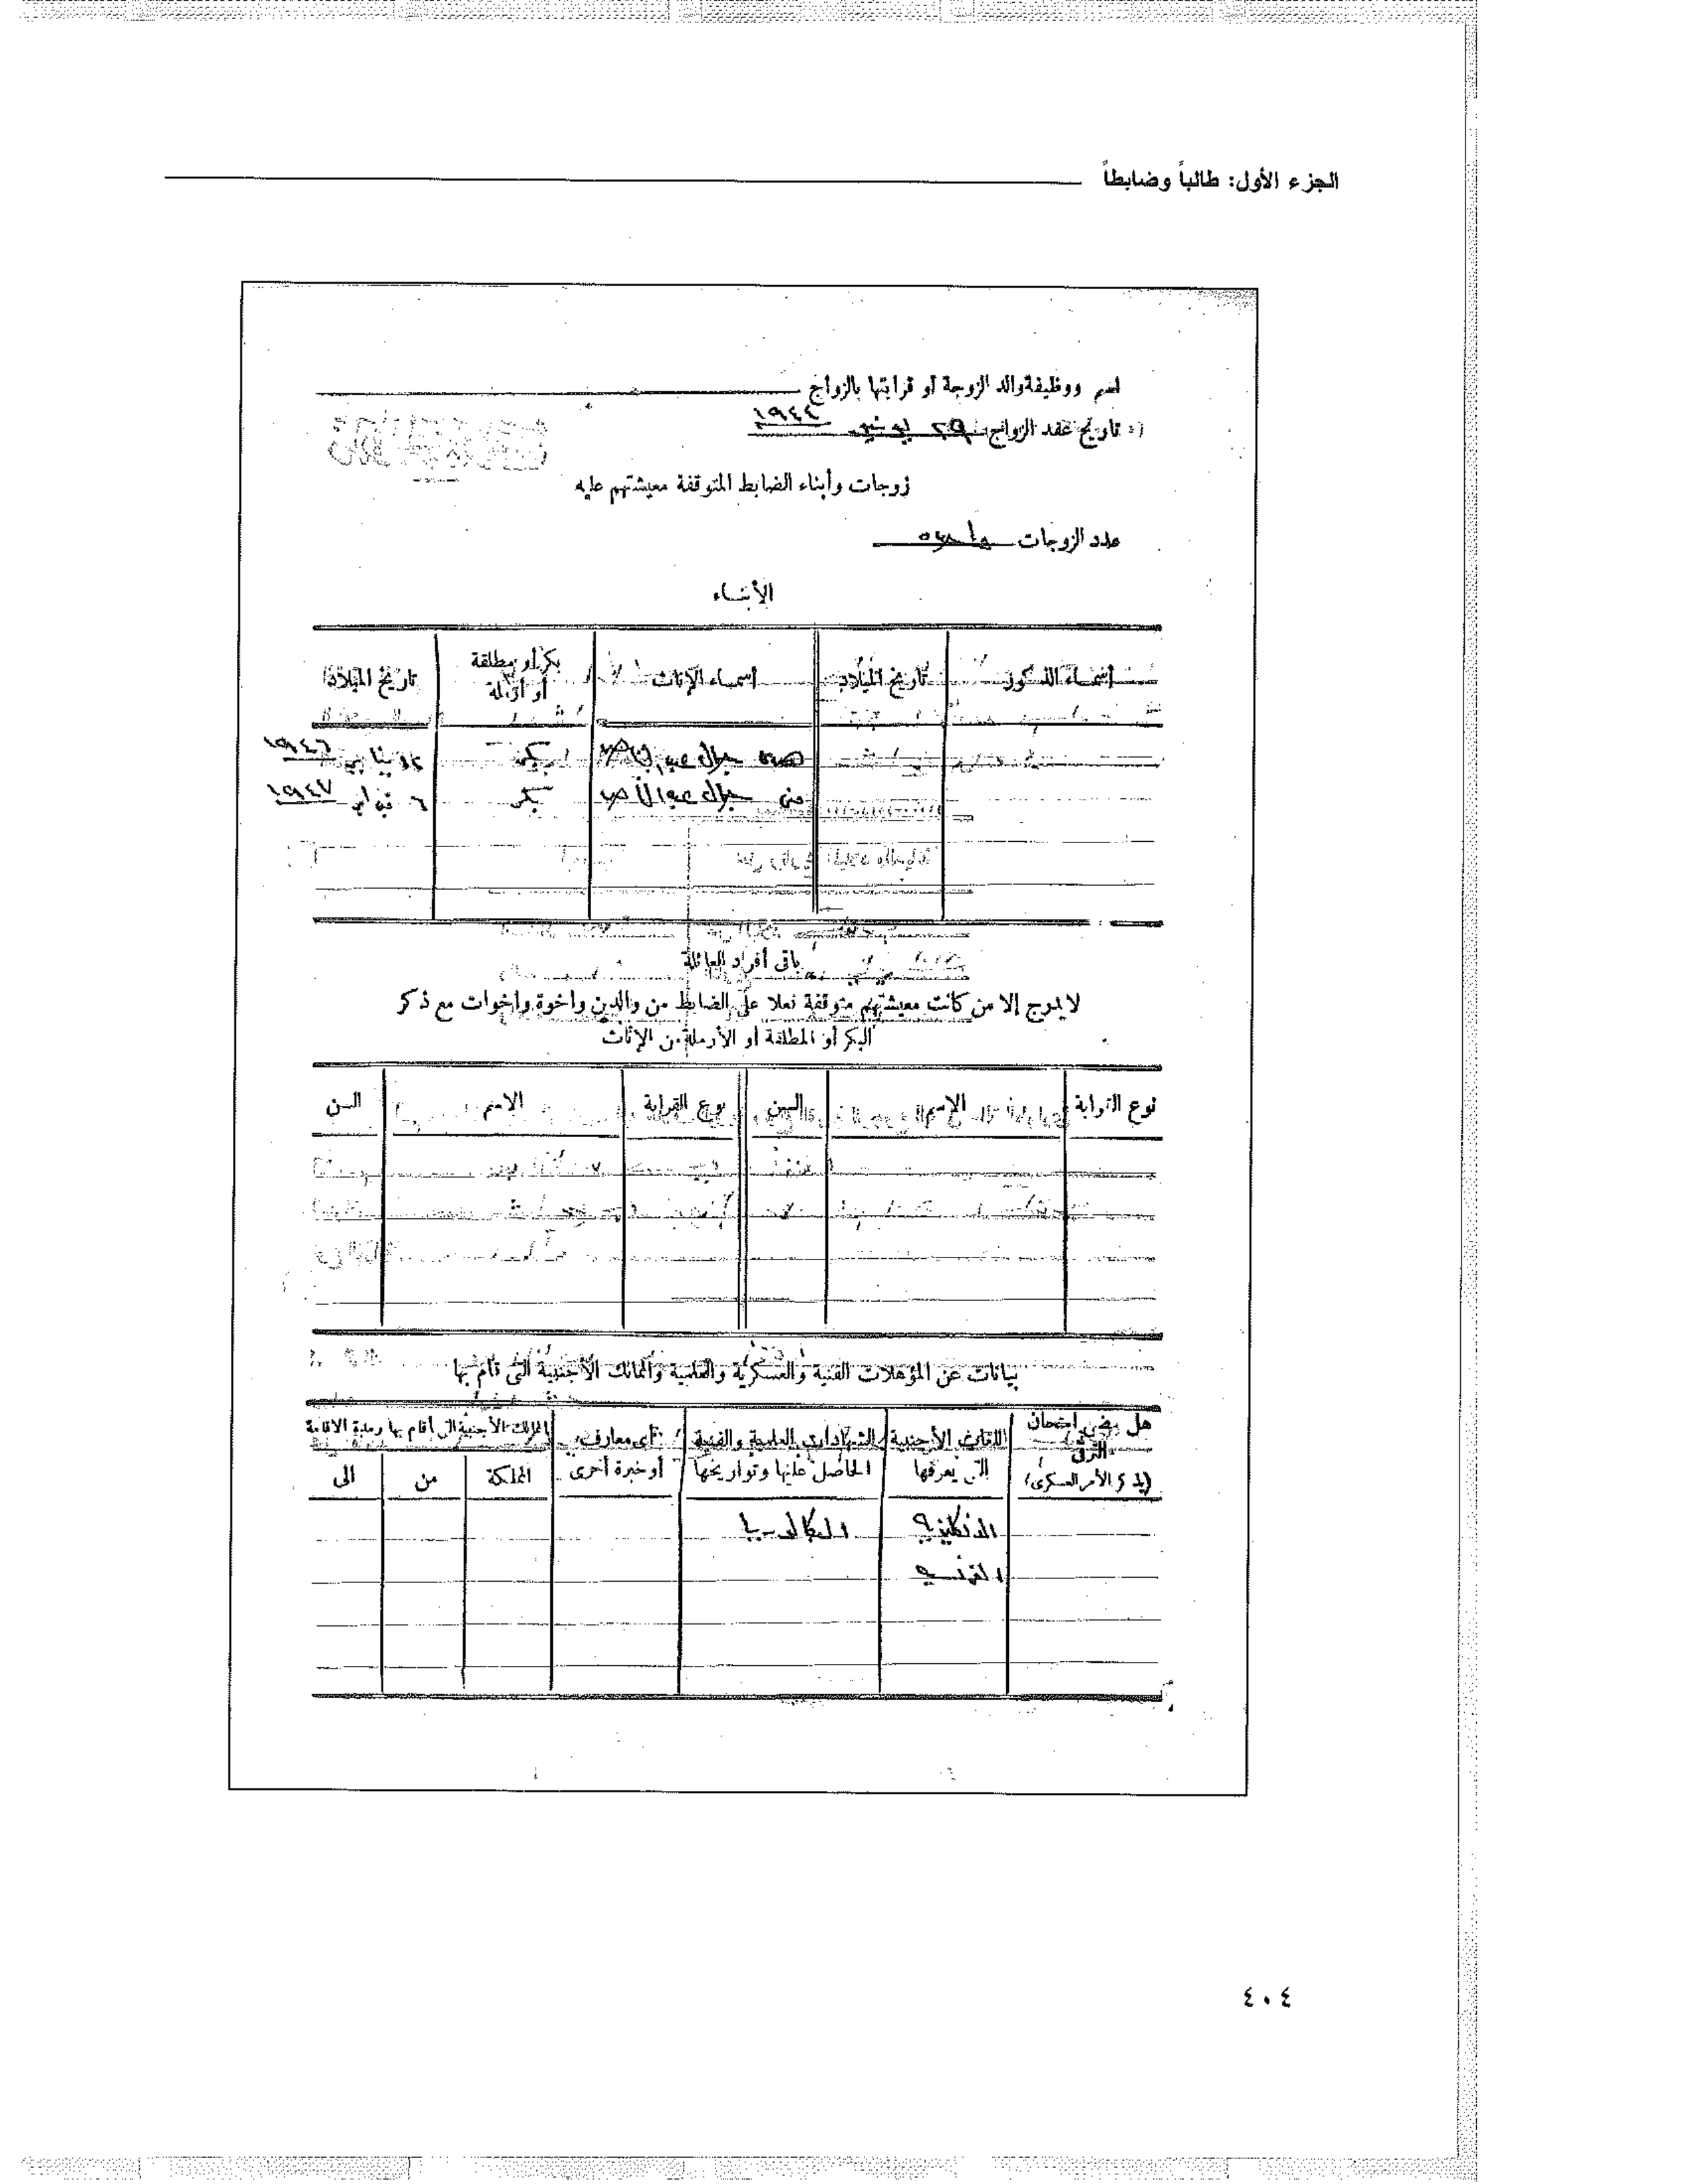 الجزء الأول: طالباً وضابطاً
اسم ووظيفة والد الزوجة أو قرابتها بالزواج
تاريخ عقد الزواج ٢٩ يونيو ١٩٤٤
زوجات وأبناء الضابط المتوقفة معيشتهم عليه
عدد الزوجات واحدة
الأبناء
أسماء الذكور تاريخ الميلاد أسماء الإناث بكر أو مطلقة أو أرملة تاريخ الميلاد
هدى جمال عبد الناصر بكر ١٢ يناير ١٩٤٦
منى جمال عبد الناصر بكر ٦ فبراير ١٩٤٧
باقى أفراد العائلة
لايدرج إلا من كانت معيشتهم متوقفة فعلا على الضابط من والدين وإخوة وأخوات مع ذكر
البكر أو المطلقة أو الأرملة من الإناث
نوع القرابة الإسم السن نوع القرابة الاسم السن
بيانات عن المؤهلات الفنية والعسكرية والعلمية والممالك الأجنبية التى قام بها
هل يمضى إمتحان الترقى (يذكر الأمر العسكرى) اللغات الأجنبية التى يعرفها الشهادات العلمية والفنية الحاصل عليها وتواريخها أى معارف أو خبرة أخرى الممالك الأجنبية التى أقام بها ومدة الاقامة
المملكة من الى
الانكليزية البكالوريا
الفرنسية
٤٠٤